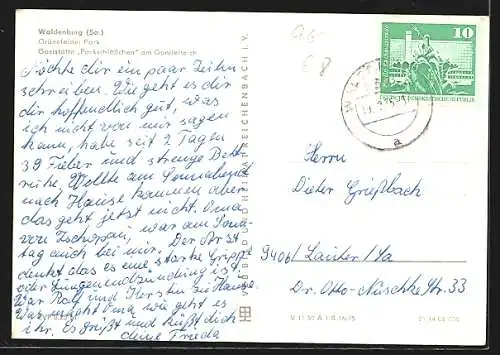 Waldenburg (Sa.)
Grünefelder Park
Gaststätte „Parkschlößchen" am Gondelteich
Möchte dir ein paar Zeilen
schreiben. Wie geht es dir
dir hoffentlich gut, was
ich nicht von mir sagen
kann, habe seit 2 Tagen
39 Fieber und strenge Bett
ruhe, Wollte am Sonnabend
nach Hause kommen aber
das geht jetzt nicht. Oma
von Zschopau, war am Sonn
tag auch bei mir. Der Arzt
denkt das es eine starke Gripp
oder Lungenentzündung ist.
War Rolf und Kerstin zu Hause.
Was macht Oma wie geht es
ihr. Es grüßt und küßt dich
deine Frieda
VEB BILD UND HEIMAT REICHENBACH I. V.
€ 8
10
a
Herrn
Dieter Grießbach
9406 Lauter/Sa
Dr. Otto-Nuschke Str. 33